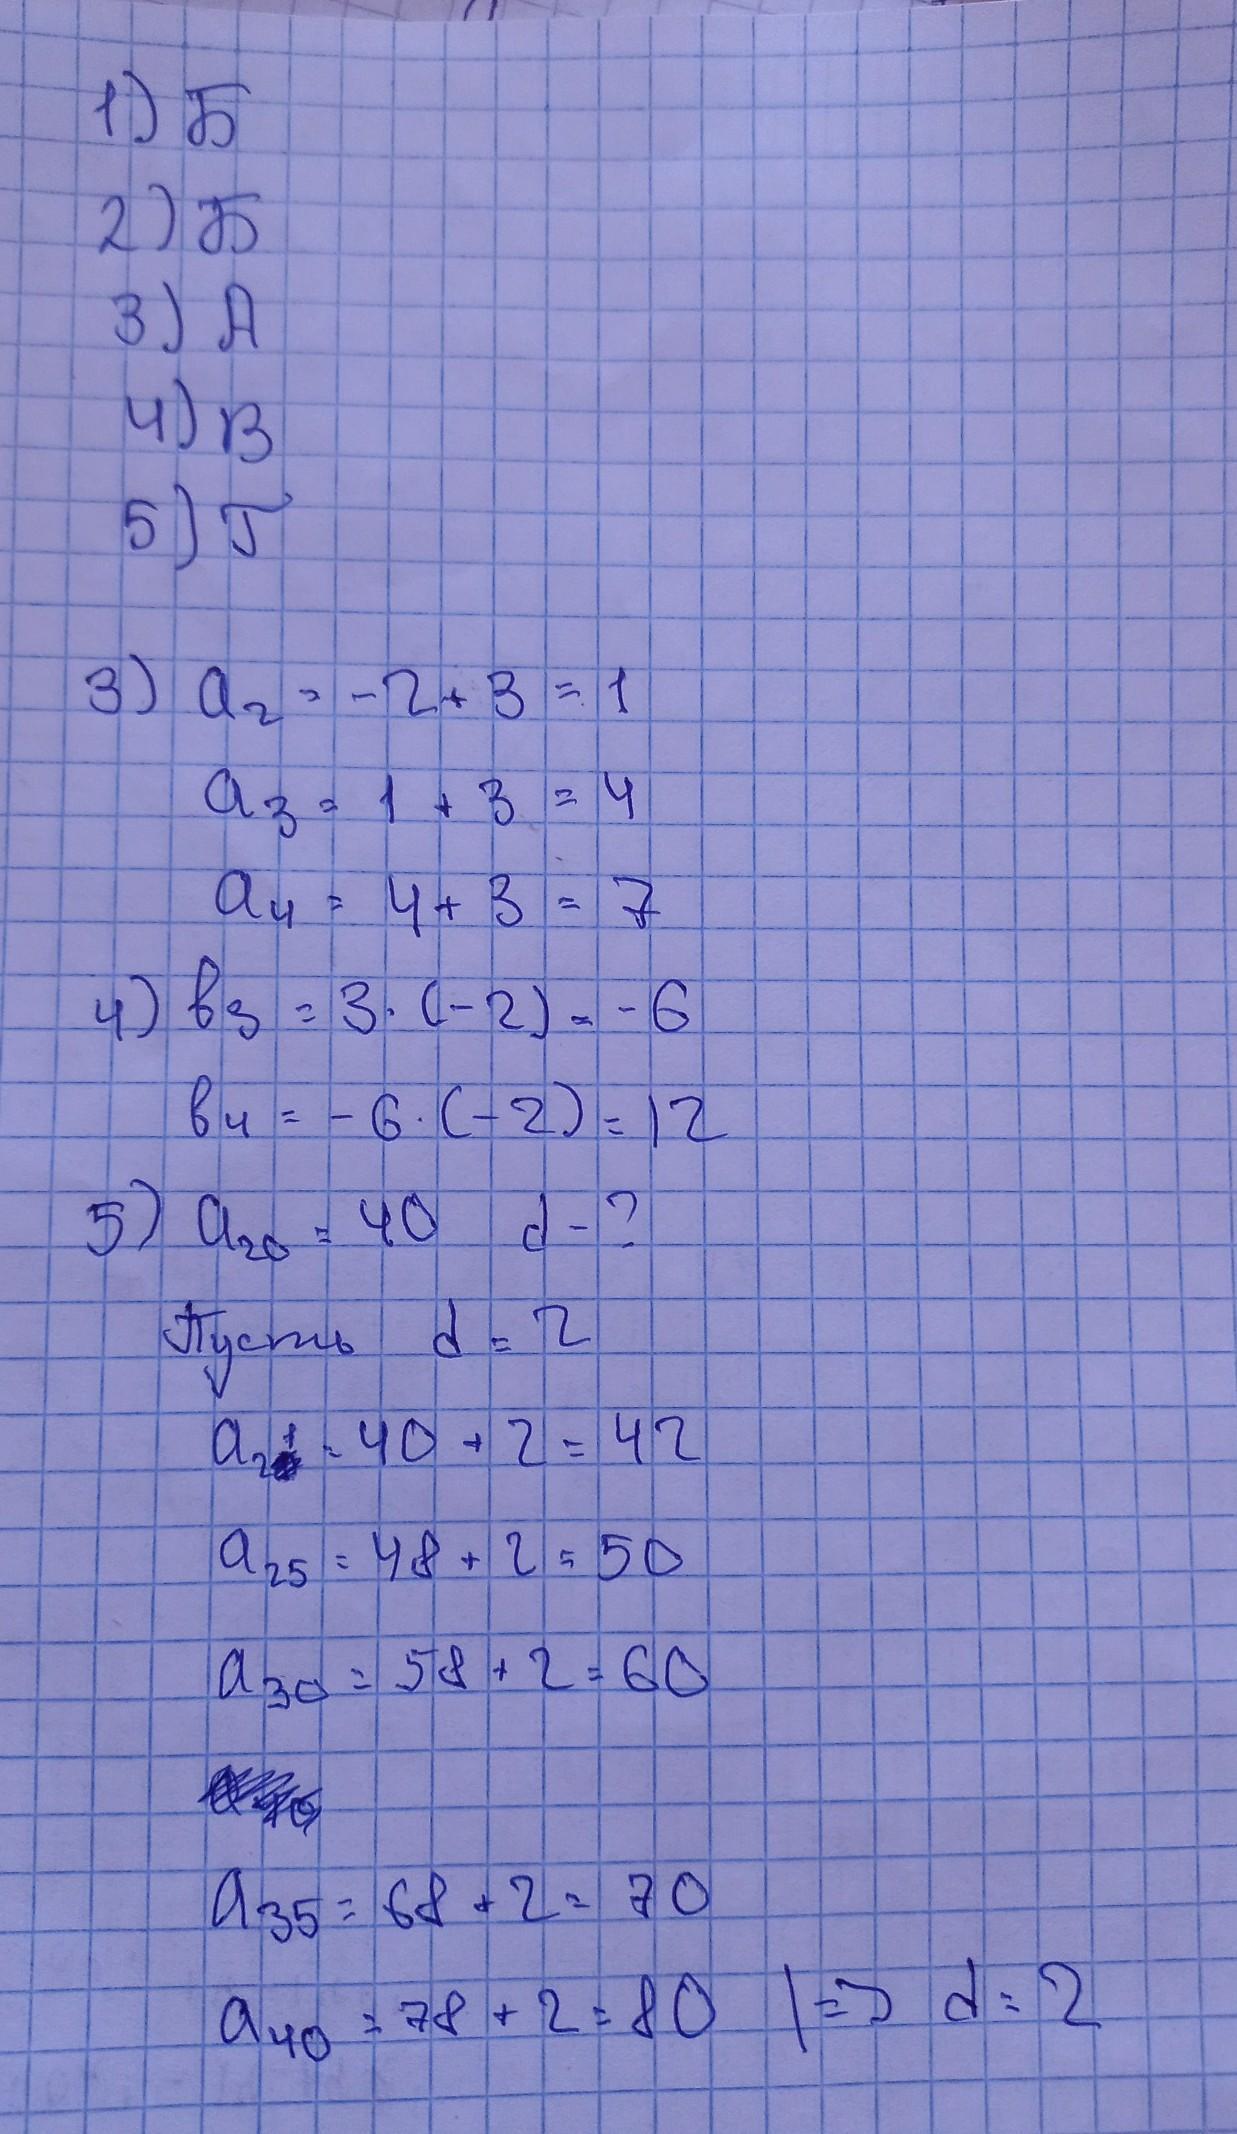 1) Б
2) Б
3) А
4) В
5) Г
3) a₂ = -2 + 3 = 1
a₃ = 1 + 3 = 4
a₄ = 4 + 3 = 7
4) в₃ = 3 · (-2) = -6
в₄ = -6 · (-2) = 12
5) a₂₀ = 40 d - ?
Пусть d = 2
a₂₁ = 40 + 2 = 42
a₂₅ = 48 + 2 = 50
a₃₀ = 58 + 2 = 60
a₃₅ = 68 + 2 = 70
a₄₀ = 78 + 2 = 80 | => d = 2